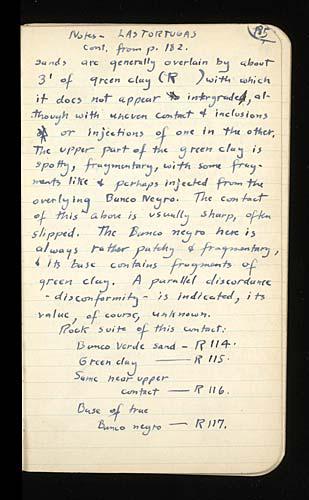 Notes - LAS TORTUGAS
185
cont. from p. 182.
sands are generally overlain by about
3' of green clay (R ) with which
it does not appear to intergrade, al-
though with uneven contact & inclusions
or injections of one in the other.
The upper part of the green clay is
spotty, fragmentary, with some frag-
ments like & perhaps injected from the
overlying Banco Negro. The contact
of this above is usually sharp, often
slipped. The Banco negro here is
always rather patchy & fragmentary,
& its base contains fragments of
green clay. A parallel discordance
- disconformity - is indicated, its
value, of course, unknown.
Rock suite of this contact:
Banco Verde sand - R 114.
Green clay — R 115.
Same near upper
contact — R 116.
Base of true
Banco negro — R 117.